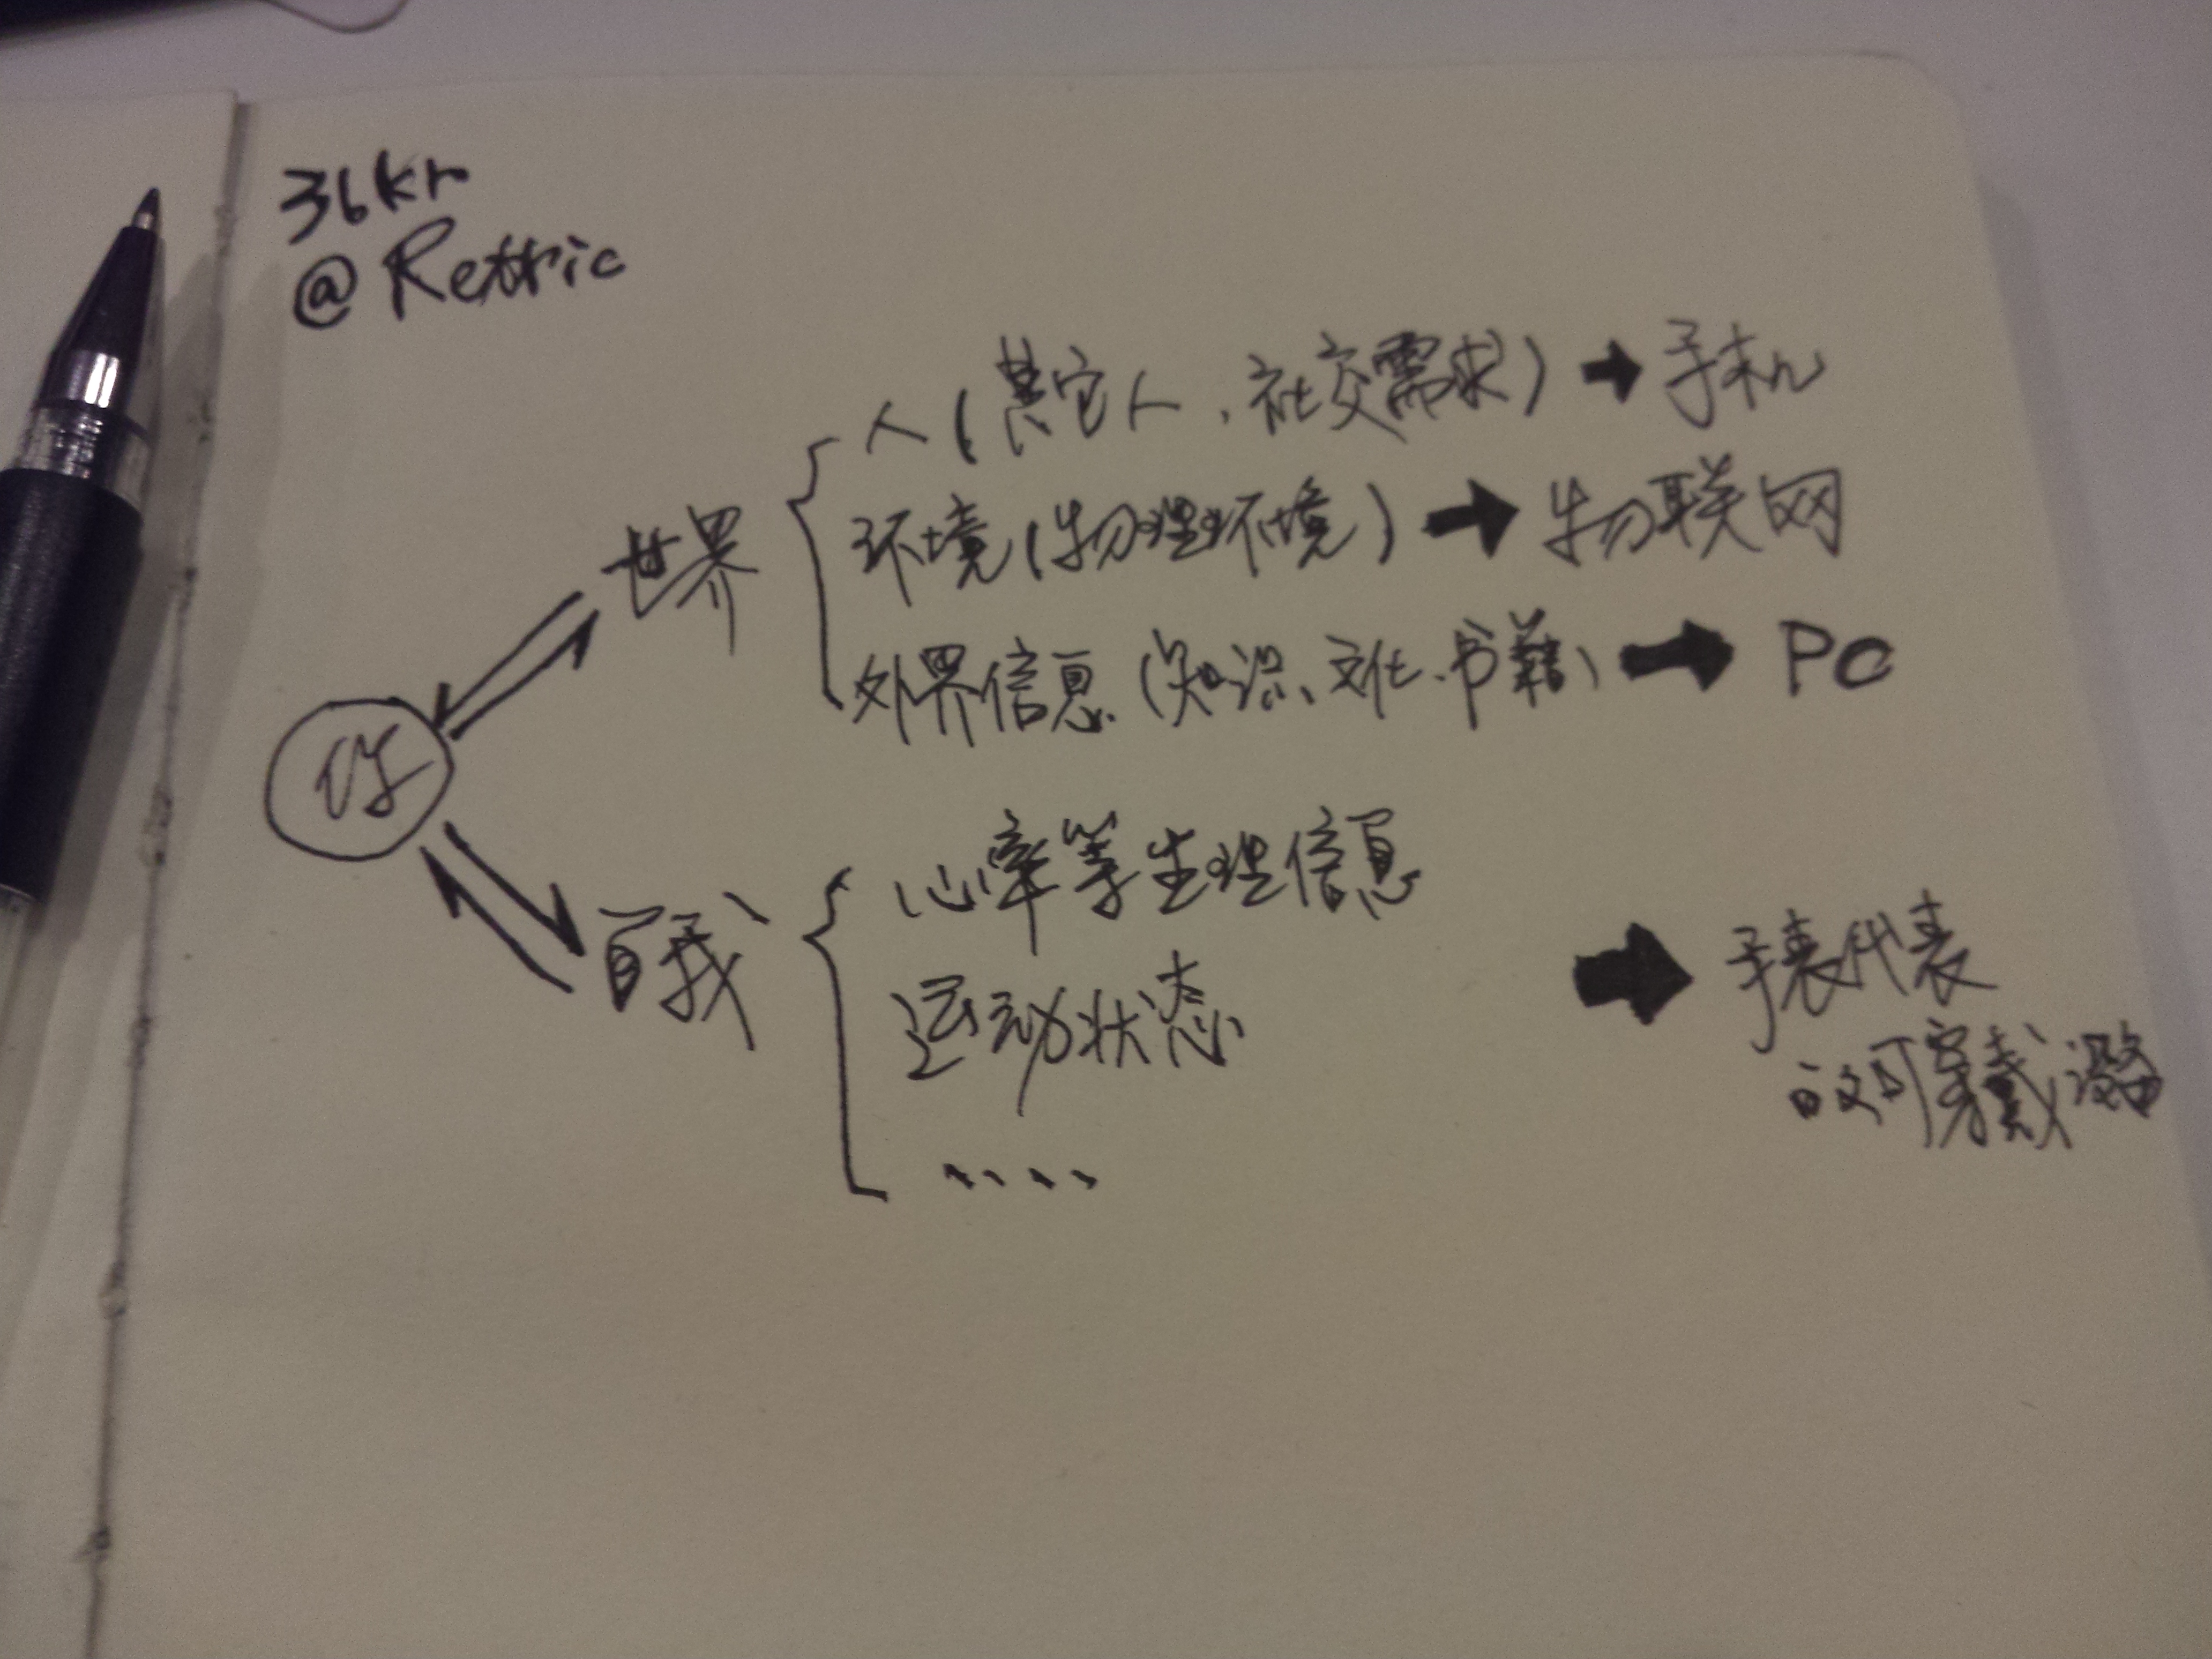 36kr
@Retric
人(其它人，社交需求) → 手机
世界
环境(物理环境) → 物联网
外界信息(知识、文化、书籍) → PC
你
心率等生理信息
自我
运动状态
→ 手表代表
的可穿戴设备
....